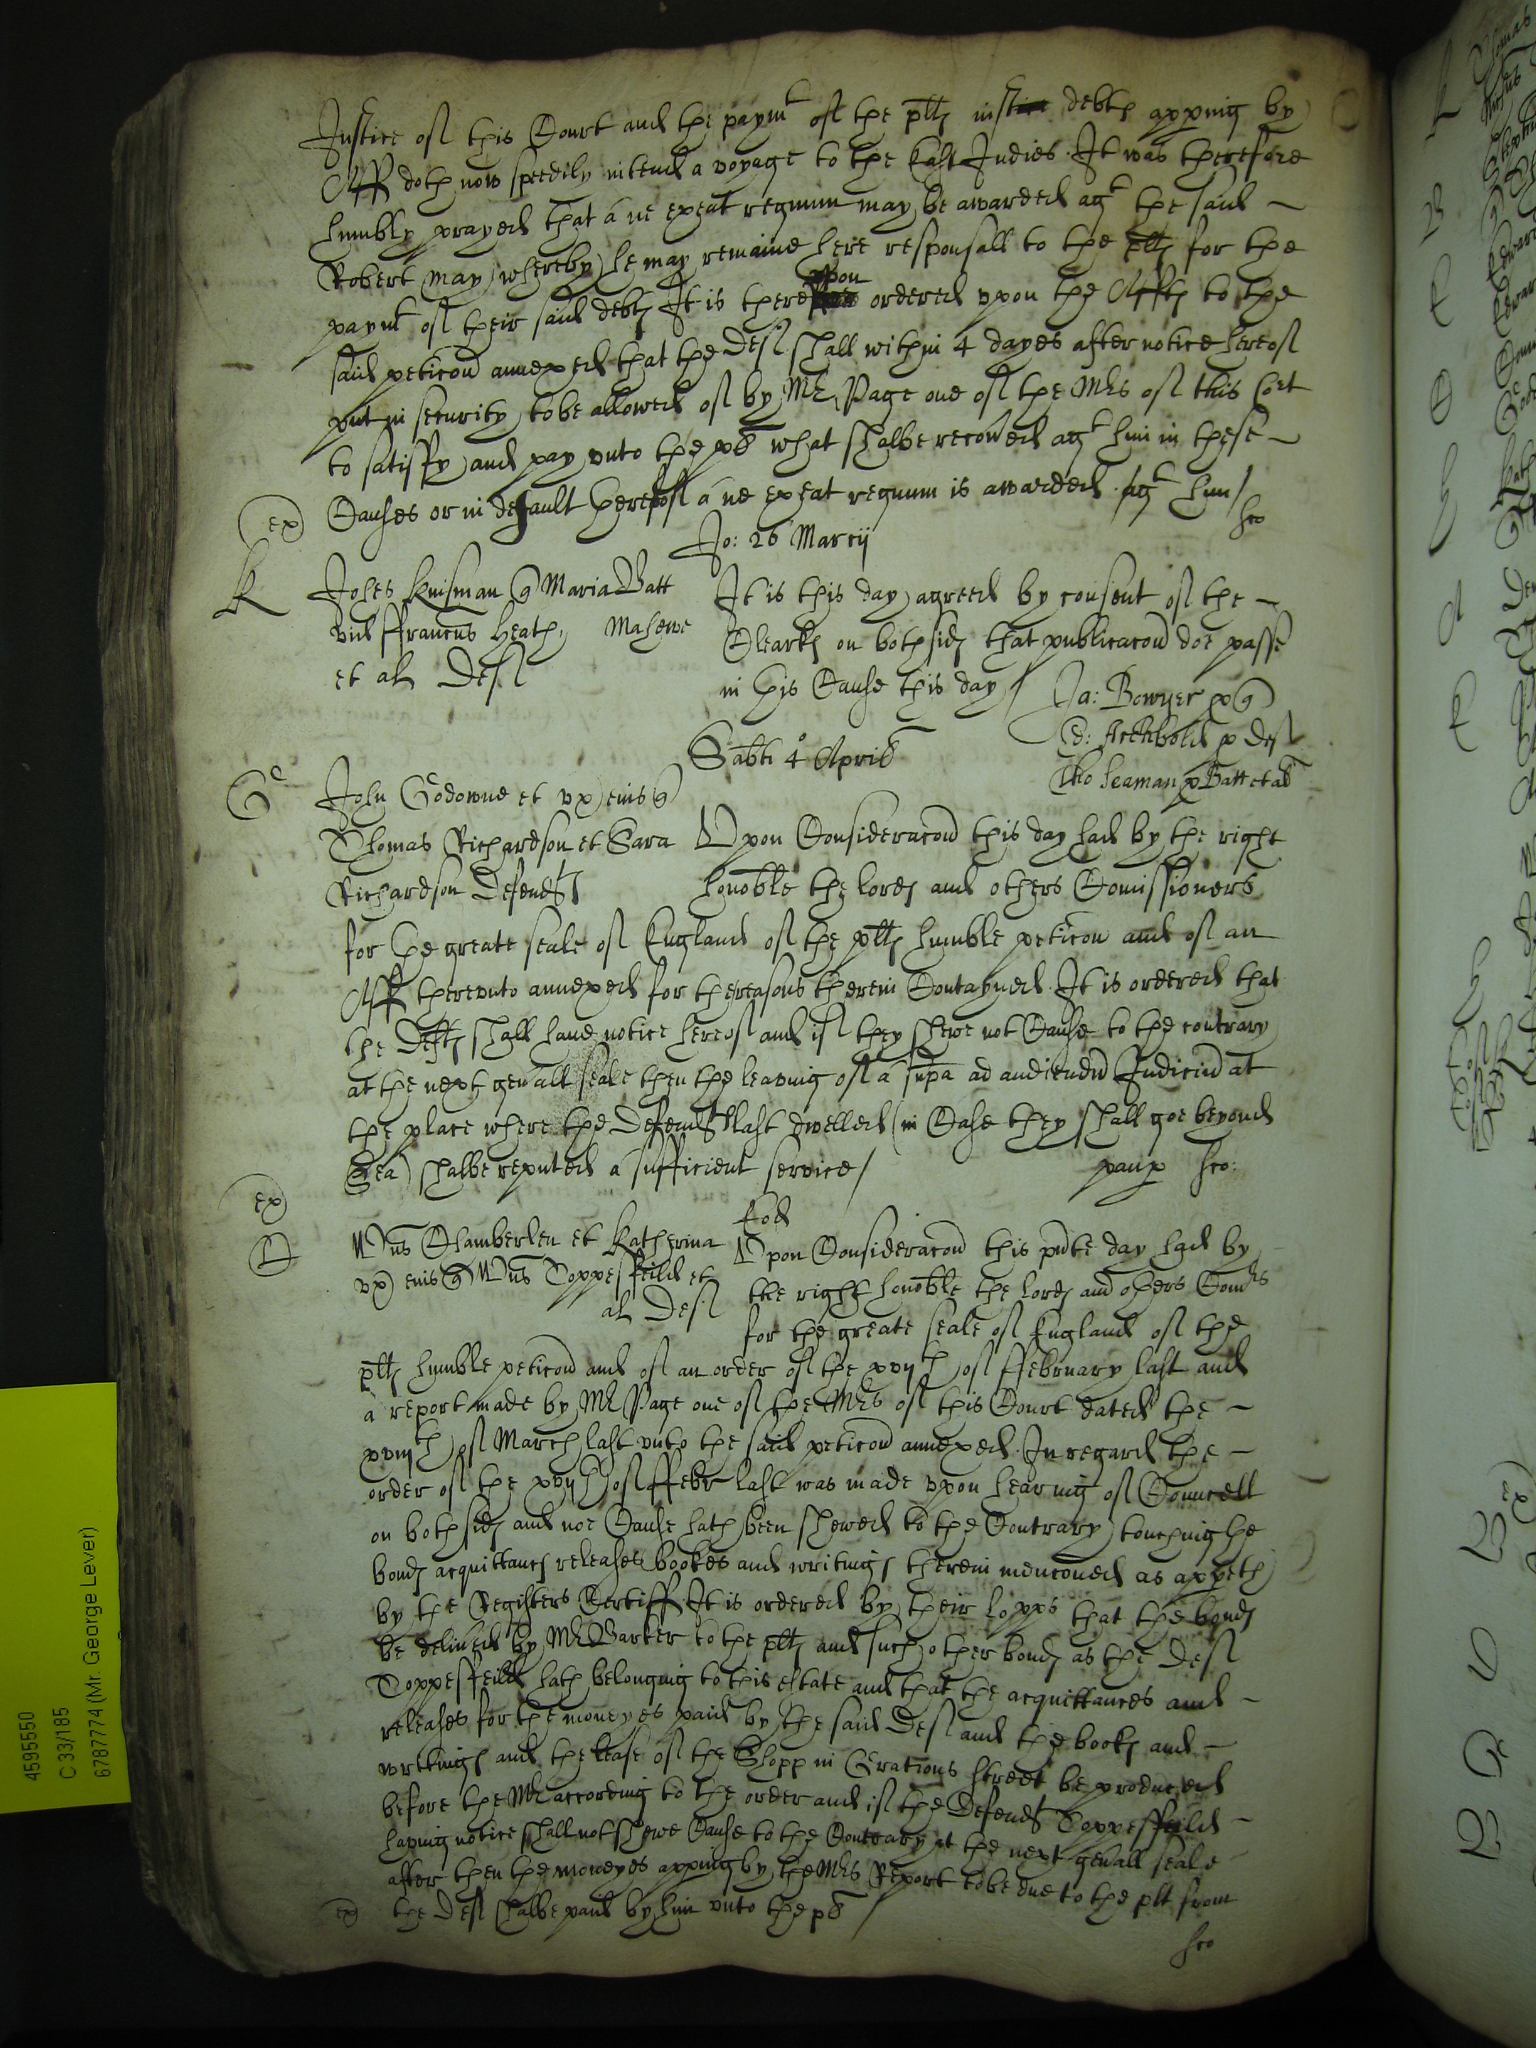 Justice of this Court and the paymt of the pltſ debtſ apping by
Aff doth now speedily intend a voyage to the East Indies. It was therefore
humbly prayed that a ne exeat regnum may be awarded agt the said
Robert May whereby he may remaine here responsall to the pltſ for the
paymt of their said debtſ It is there upon ordered upon the Affts to the
said peticon annexed that the Deft shall within 4 dayes after notice hereof
put in security to be allowed of by Mr Page one of the Mrs of this Cort
to satisfy and pay unto the pl what shalbe recoved agt him in these
Causes or in default hereof a ne exeat regnum is awarded agt him
ex
Jo: 26 Marcij
K
Johes Kinsman q Maria Batt
vid ffrancus Heath, Mahewe
et al Def
It is this day agreed by consent of the
Clearkſ on both sidſ that publicacon doe passe
in this Cause this day
Ja: Bowyer p q
Ed: Archbold p Def
Tho Seaman p Batt et al
Sabti 4o April
G
John Godowne et ux eius q
Thomas Richardson et Sara
Richardson Defendts
Upon Consideracon this day had by the right
honoble the lordſ and others Comissioners
for the greate seale of England of the pltſ humble peticon and of an
Aff thereunto annexed for the reasons therein Contayned. It is ordered that
the Deftſ shall have notice hereof and if they shewe not Cause to the contrary
at the next genall seale then the leaving of a supa ad audiendu Judiciu at
the place where the Defendts last dwelled (in Case they shall goe beyond
Sea) shalbe reputed a sufficient service
paup
ex
Eod
Chamberlen et Katherina
ux eius q Toppesfeild et
al Def
Upon Consideracon this pnte day had by
the right honoble the lordſ and others Comrs
for the greate seale of England of the
pltſ humble peticon and of an order of the xvijth of ffebruary last and
a report made by Mr Page one of the Mrs of this Court dated the
xviijth of March last unto the said peticon annexed. In regard the
order of the xvijth of ffebr last was made upon hearing of Councell
on both sidſ and noe Cause hath been shewed to the Contrary touching the
bondſ acquittancſ releases bookes and writingſ therein menconed as appeth
by the Registers Certiff It is ordered by their lopps that the bondſ
be delived by Mr Barker to the pltſ and such other bondſ as the Def
Toppesfeild hath belonging to this estate and that the acquittances and
releases for the moneyes paid by the said Def and the bookſ and
writingſ and the lease of the Shopp in Gracious Street be produced
before the Mr according to the order and if the Defendt Toppesfeild
having notice shall not shewe Cause to the Contrary at the next genall seale
after then the moneyes apping by the Mrs Report to be due to the plt from
the Def shalbe paid by him unto the pl
ex
4595550
C 33/185
6787774 (Mr. George Lever)